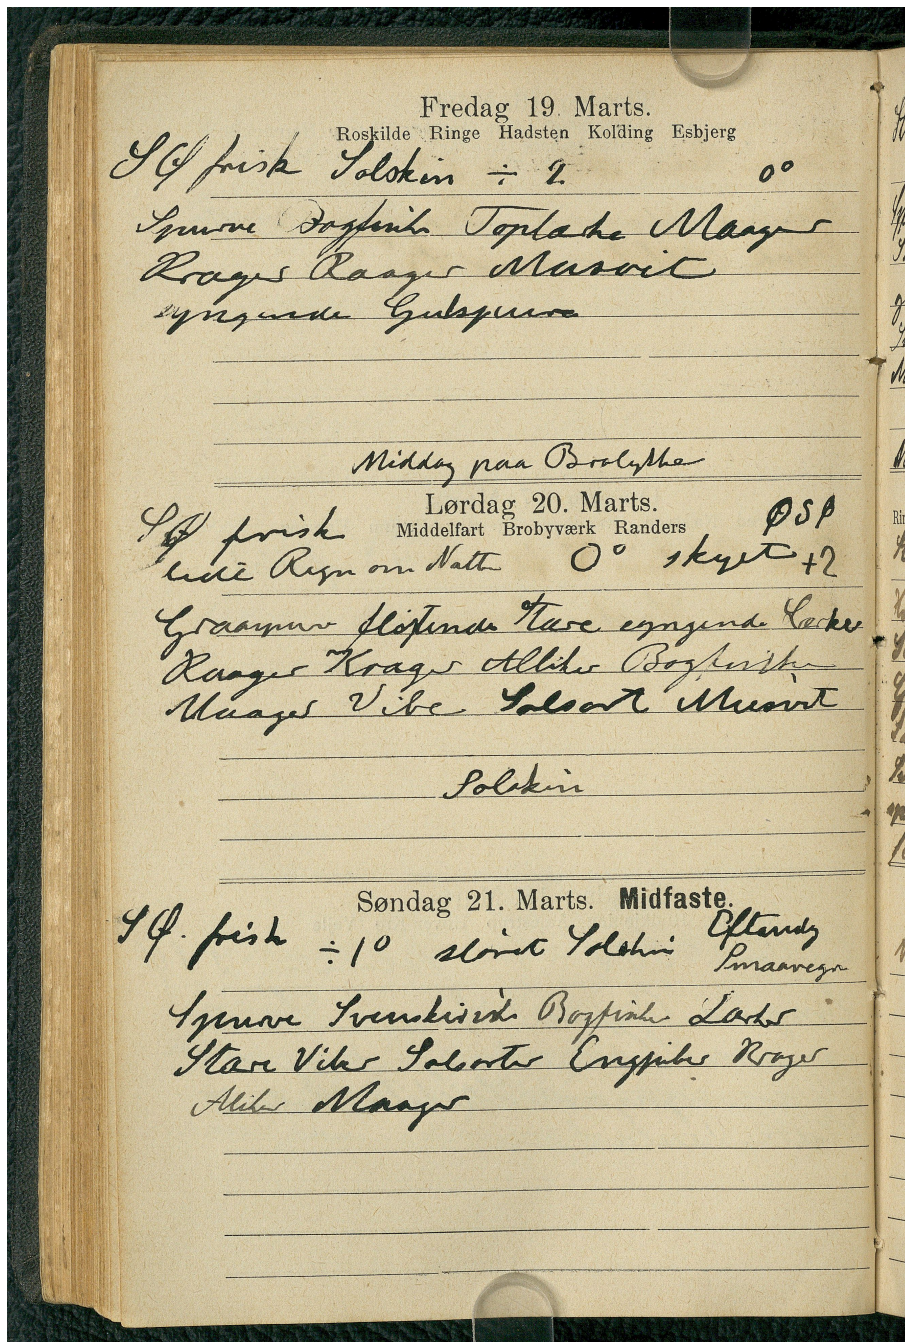 Fredag 19. Marts.
Roskilde Ringe Hadsten Kolding Esbjerg
SØ frisk Solskin ÷ 2 0°
Spurve Bogfinke Toplærke Maager
Krager Raager Musvit
syngende Gulspurv
Middag paa Brolykke
Lørdag 20. Marts.
Middelfart Brobyværk Randers
SØ frisk ØSØ
lidt Regn om Natten 0° skyet +2
Graaspurv fløjtende Stære syngende Lærker
Raager Krager Alliker Bogfinke
Maager Vibe Solsort Musvit
Solskin
Søndag 21. Marts. Midfaste.
SØ. frisk ÷1° sløret Solskin Eftermdg
Smaaregn
Spurve Svenskirisk Bogfinke Lærker
Stære Viber Solsorter Engpiber Krager
Aliker Maager